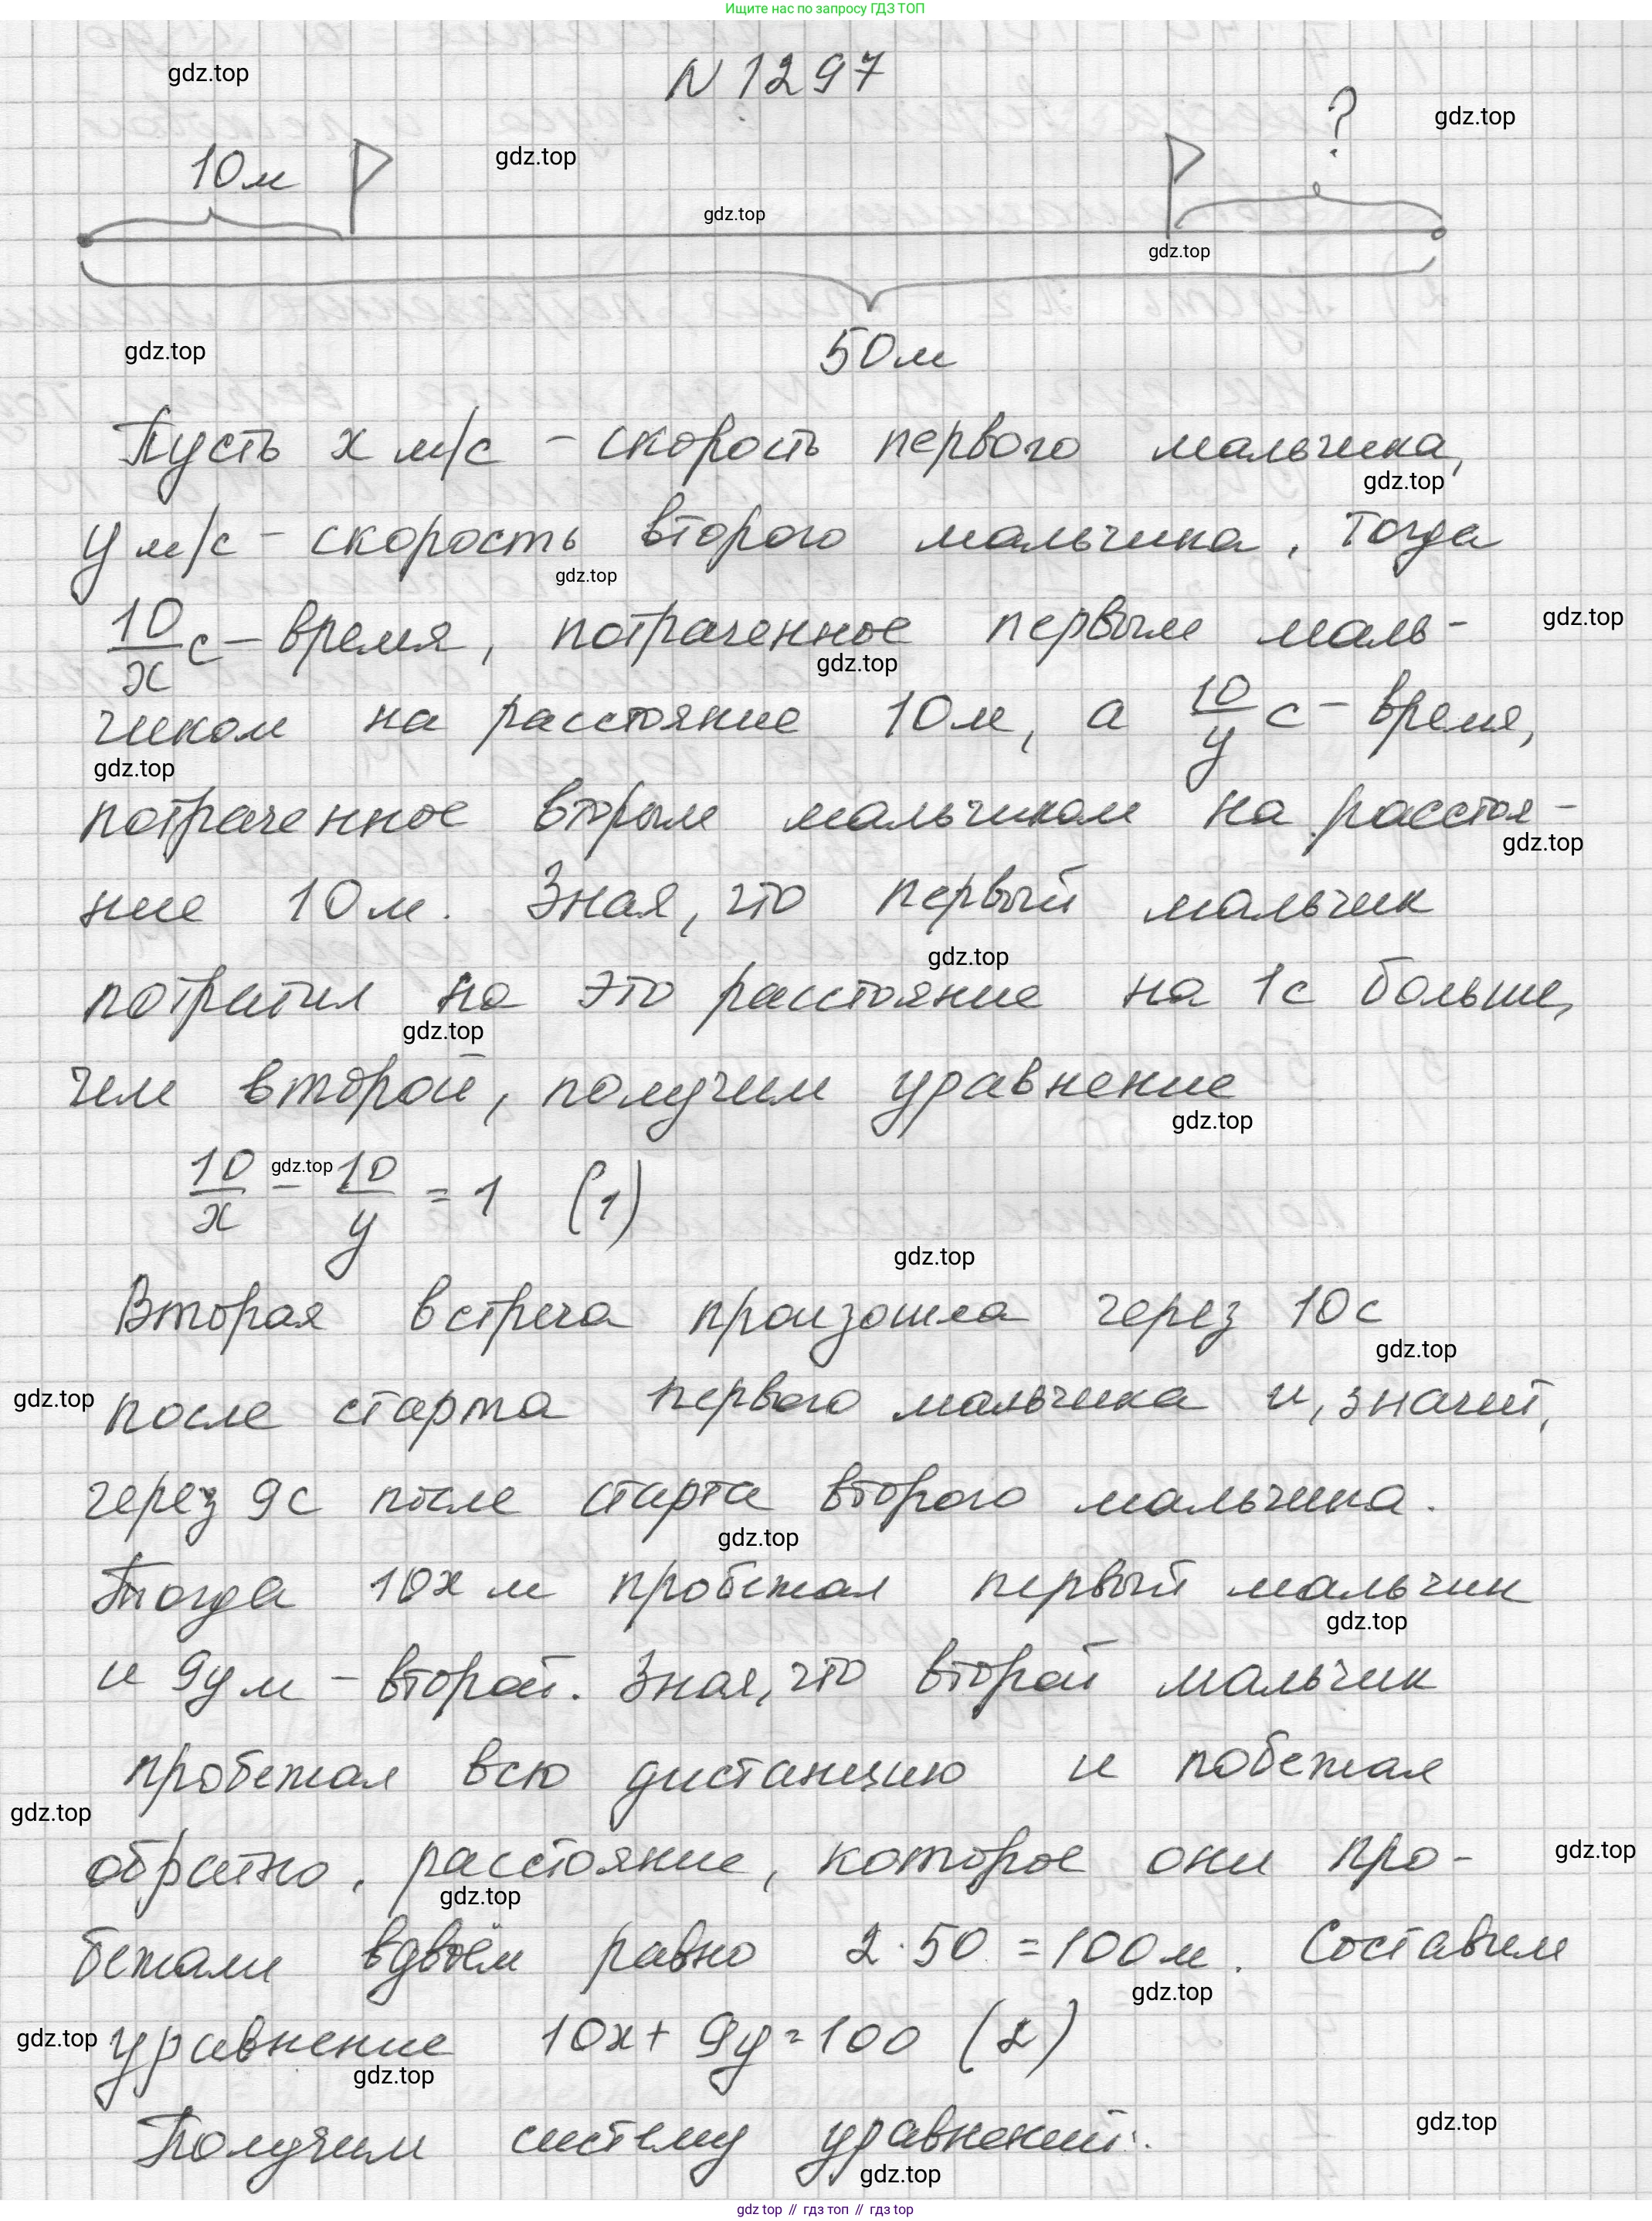 Ищите нас по запросу ГДЗ ТОП
N 1297
gdz.top
?
gdz.top
10м
gdz.top
gdz.top
gdz.top
50м
gdz.top
Пусть x м/с – скорость первого мальчика,
gdz.top
y м/с – скорость второго мальчика. Тогда
gdz.top
10/x с – время, потраченное первым маль-
gdz.top
gdz.top
чиком на расстояние 10м, а 10/y с – время,
gdz.top
потраченное вторым мальчиком на расстоя-
gdz.top
ние 10м. Зная, что первый мальчик
gdz.top
потратил на это расстояние на 1с больше,
gdz.top
чем второй, получим уравнение
gdz.top
10/x – 10/y = 1 (1)
gdz.top
gdz.top
Вторая встреча произошла через 10с
gdz.top
gdz.top
после старта первого мальчика и, значит,
через 9с после старта второго мальчика.
gdz.top
Тогда 10x м пробежал первый мальчик
gdz.top
и 9y м – второй. Зная, что второй мальчик
пробежал всю дистанцию и побежал
gdz.top
обратно, расстояние, которое они про-
gdz.top
gdz.top
бежали вдвоём равно 2·50 = 100м. Составим
gdz.top
gdz.top
уравнение 10x + 9y = 100 (2)
gdz.top
Получим систему уравнений.
gdz.top
gdz.top
gdz top // гдз топ // гдз top